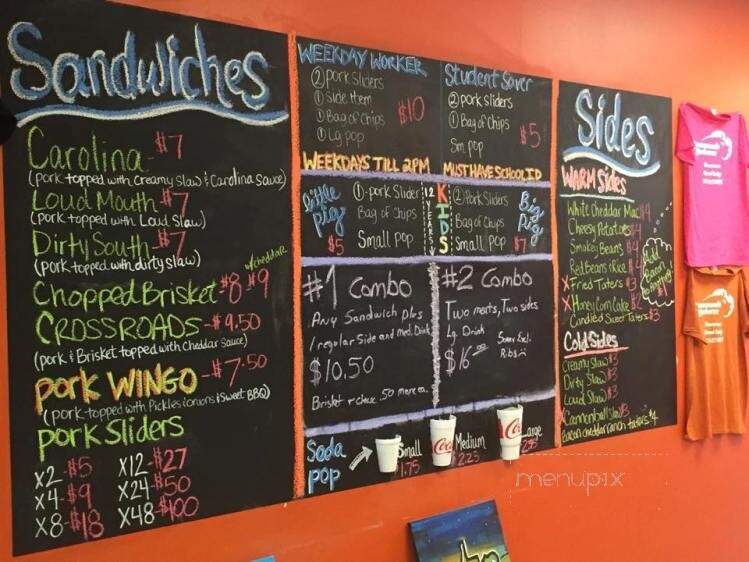 Sandwiches
Carolina - $7
(pork topped with Creamy Slaw & Carolina Sauce)
Loud Mouth - $7
(pork topped with Loud Slaw)
Dirty South - $7
(pork topped with dirty slaw)
w/cheddar
Chopped Brisket - $8 $9
CROSSROADS - $9.50
(pork & Brisket topped with Cheddar Sauce)
pork WINGO - $7.50
(pork topped with Pickles & onions & Sweet BBQ)
pork Sliders
x2 - $5 x12 - $27
x4 - $9 x24 - $50
x8 - $18 x48 - $100
WEEKDAY WORKER
② pork Sliders
① Side Item
① Bag of Chips
① Lg pop
$10
WEEKDAYS TILL 2PM
Student Saver
② pork Sliders
① Bag of Chips
Sm pop
$5
MUST HAVE SCHOOL I.D
little pig
①-pork Slider
Bag of Chips
Small pop
$5
12 YEARS
KIDS
② Pork Sliders
Bag of Chips
Small pop
$7
Big Pig
#1 Combo
Any Sandwich plus
1 regular Side and med. Drink
$10.50
Brisket + cheese .50 more ea.
#2 Combo
Two meats, Two sides
Lg. Drink
$16
Ribs
Soda pop
Small 1.75
Medium 2.25
Large
Coca
Sides
WARM Sides
White Cheddar Mac $4
Cheesy Potatoes $4
Smokey Beans $4
Red beans & Rice
x Fried Taters $3
x Honey Corn Cake
Candied Sweet Taters $3
Add Bacon
Cold Sides
Creamy Slaw $3
Dirty Slaw $3
Loud Slaw $3
Cannonball Slaw $3
Bacon cheddar ranch taters $4
menupix